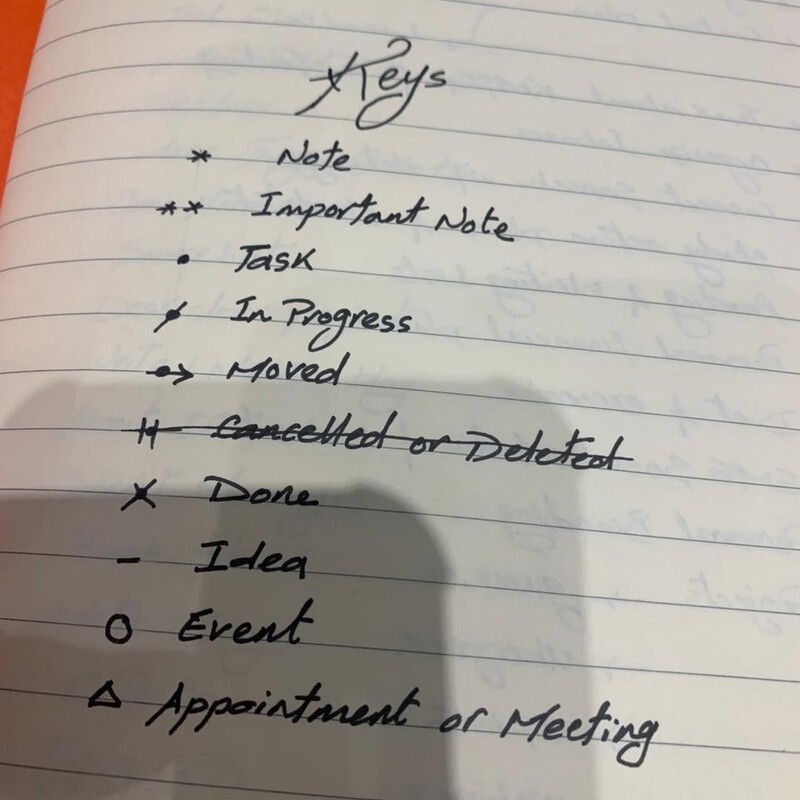 Keys
* Note
** Important Note
• Task
In Progress
Moved
Cancelled or Deleted
X Done
– Idea
O Event
△ Appointment or Meeting